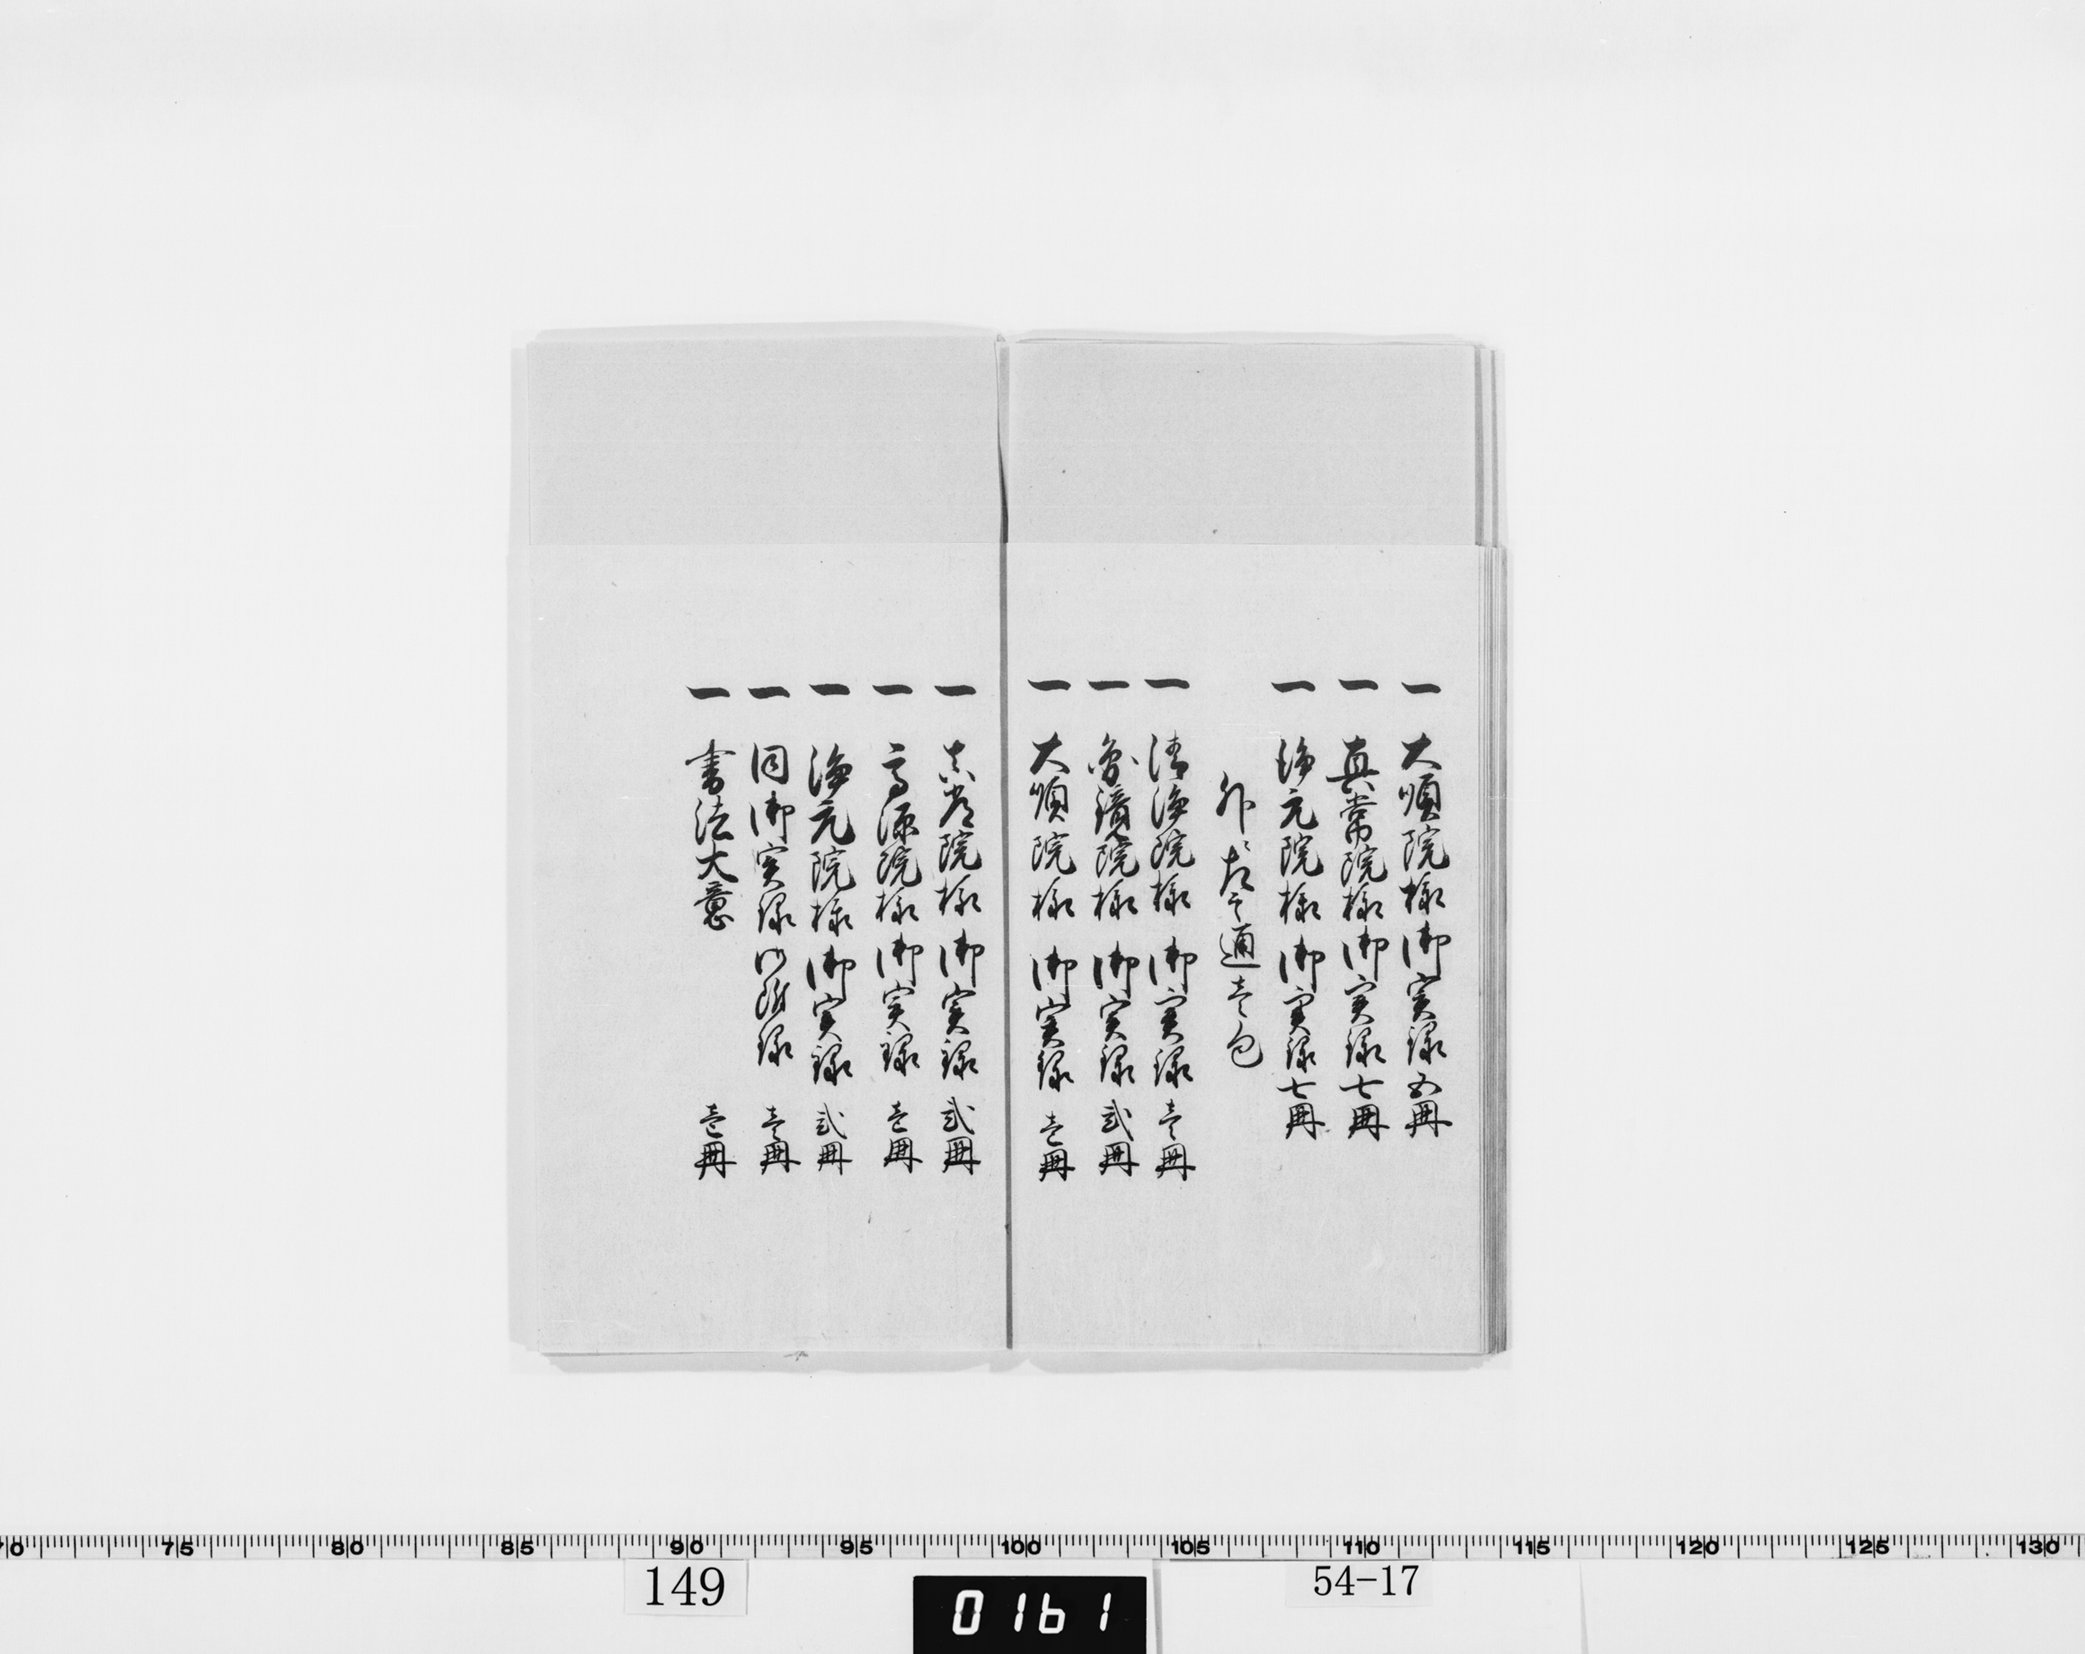 一 大順院様御実録五冊
一 真常院様御実録七冊
一 浄元院様御実録七冊
外ニ 通壱包
一 清浄院様 御実録 壱冊
一 院様 御実録 弐冊
一 大順院様 御実録 壱冊
一 真常院様 御実録 弐冊
一 高源院様御実録 壱冊
一 浄元院様御実録 弐冊
一 同御実録御附録 壱冊
一 書法大意 壱冊
70 75 80 85 90 95 100 105 110 115 120 125 130
149
0161
54-17